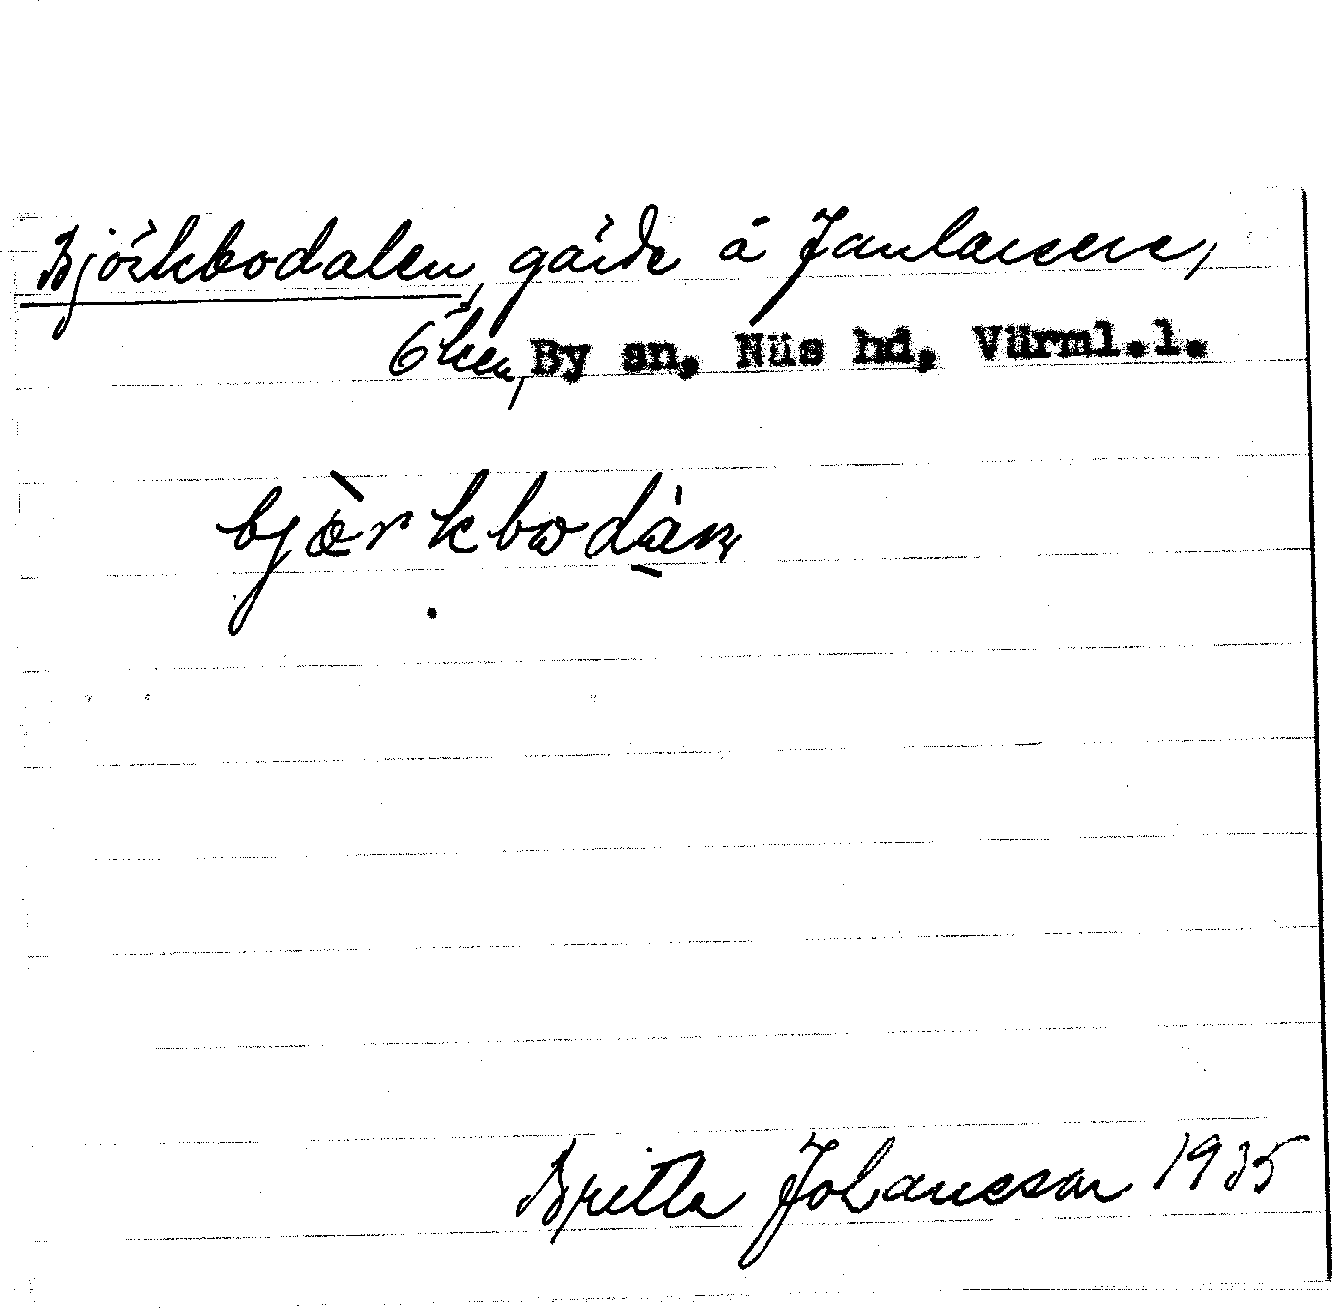 Björkbodalen, gärde å Janlarsere,
Öhen, By sn, Näs hd, Värml.l.
bjòrkbodàn
Britta Johansson 1935